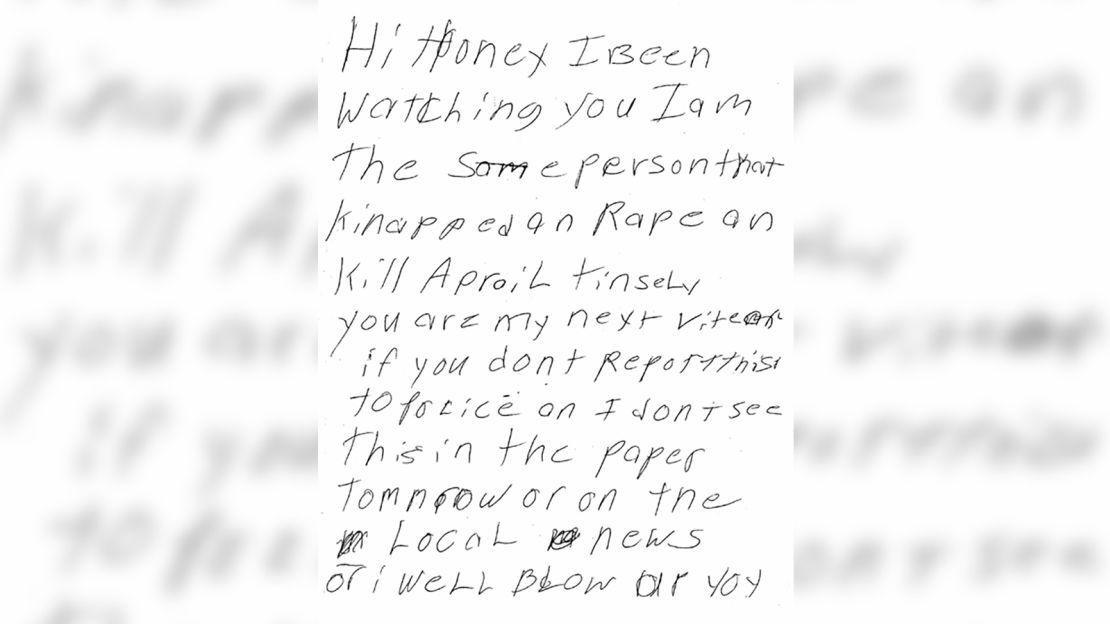 Hi Honey I Been
Watching you I am
The Same person that
kinapped an Rape an
Kill Aproil tinsely
you are my next
if you dont Report this
to police an I dont see
this in the paper
Tomnrow or on the
Local news
or i well BLow